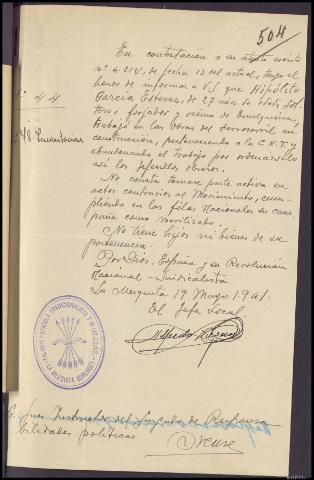 504
En contestación a su atento escrito
nº 4.214, de fecha 13 del actual, tengo el
honor de informar a V.S. que Hipólito
García Estevez, de 27 años de edad, sol-
tero, forjador y vecino de
trabajó en las Obras del Ferrocarril en
construcción, perteneciendo a la C.N.T. y
abandonando el trabajo por ordenárselo
así los jefes obreros.
No consta tomase parte activa en
actos contrarios al Movimiento, cum-
pliendo en las filas Nacionales su cam-
paña como movilizado.
No tiene hijos ni bienes de su
pertenencia.
Por Dios, España y su Revolución
Nacional-Sindicalista.
La Mezquita 17 Mayo 1941.
El Jefe Local
Nº 44
FALANGE ESPAÑOLA TRADICIONALISTA Y DE LAS J.O.N.S.
LA MEZQUITA (ORENSE)
Sr. Juez Instructor del Juzgado de Responsa-
bilidades políticas
Orense